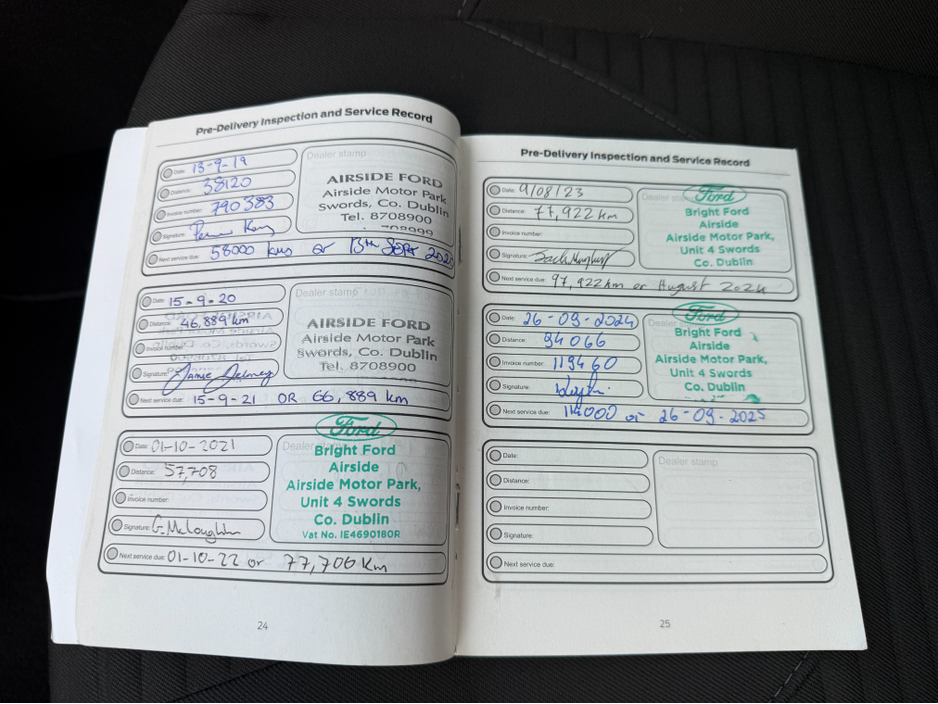 Pre-Delivery Inspection and Service Record
Date: 13-9-19
Distance: 38120
Invoice number: 790383
Signature:
Dealer stamp
AIRSIDE FORD
Airside Motor Park
Swords, Co. Dublin
Tel. 8708900
Next service due: 58000 kms or 13th Sept 2020
Date: 15-9-20
Distance: 46,889 km
Invoice number:
Signature: Jamie
Dealer stamp
AIRSIDE FORD
Airside Motor Park
Swords, Co. Dublin
Tel. 8708900
Next service due: 15-9-21 OR 66,889 km
Date: 01-10-2021
Distance: 57,708
Invoice number:
Signature: G. McLoughlin
Dealer
Ford
Bright Ford
Airside
Airside Motor Park,
Unit 4 Swords
Co. Dublin
Vat No. IE4690180R
Next service due: 01-10-22 or 77,706 Km
24
Pre-Delivery Inspection and Service Record
Date: 9/08/23
Distance: 77,922 km
Invoice number:
Signature: Zach
Dealer
Ford
Bright Ford
Airside
Airside Motor Park,
Unit 4 Swords
Co. Dublin
Next service due: 97,922km or August 2024
Date: 26-09-2024
Distance: 94066
Invoice number: 119460
Signature:
Dealer
Ford
Bright Ford
Airside
Airside Motor Park,
Unit 4 Swords
Co. Dublin
Next service due: 114000 or 26-09-2025
Date:
Distance:
Invoice number:
Signature:
Dealer stamp
Next service due:
25